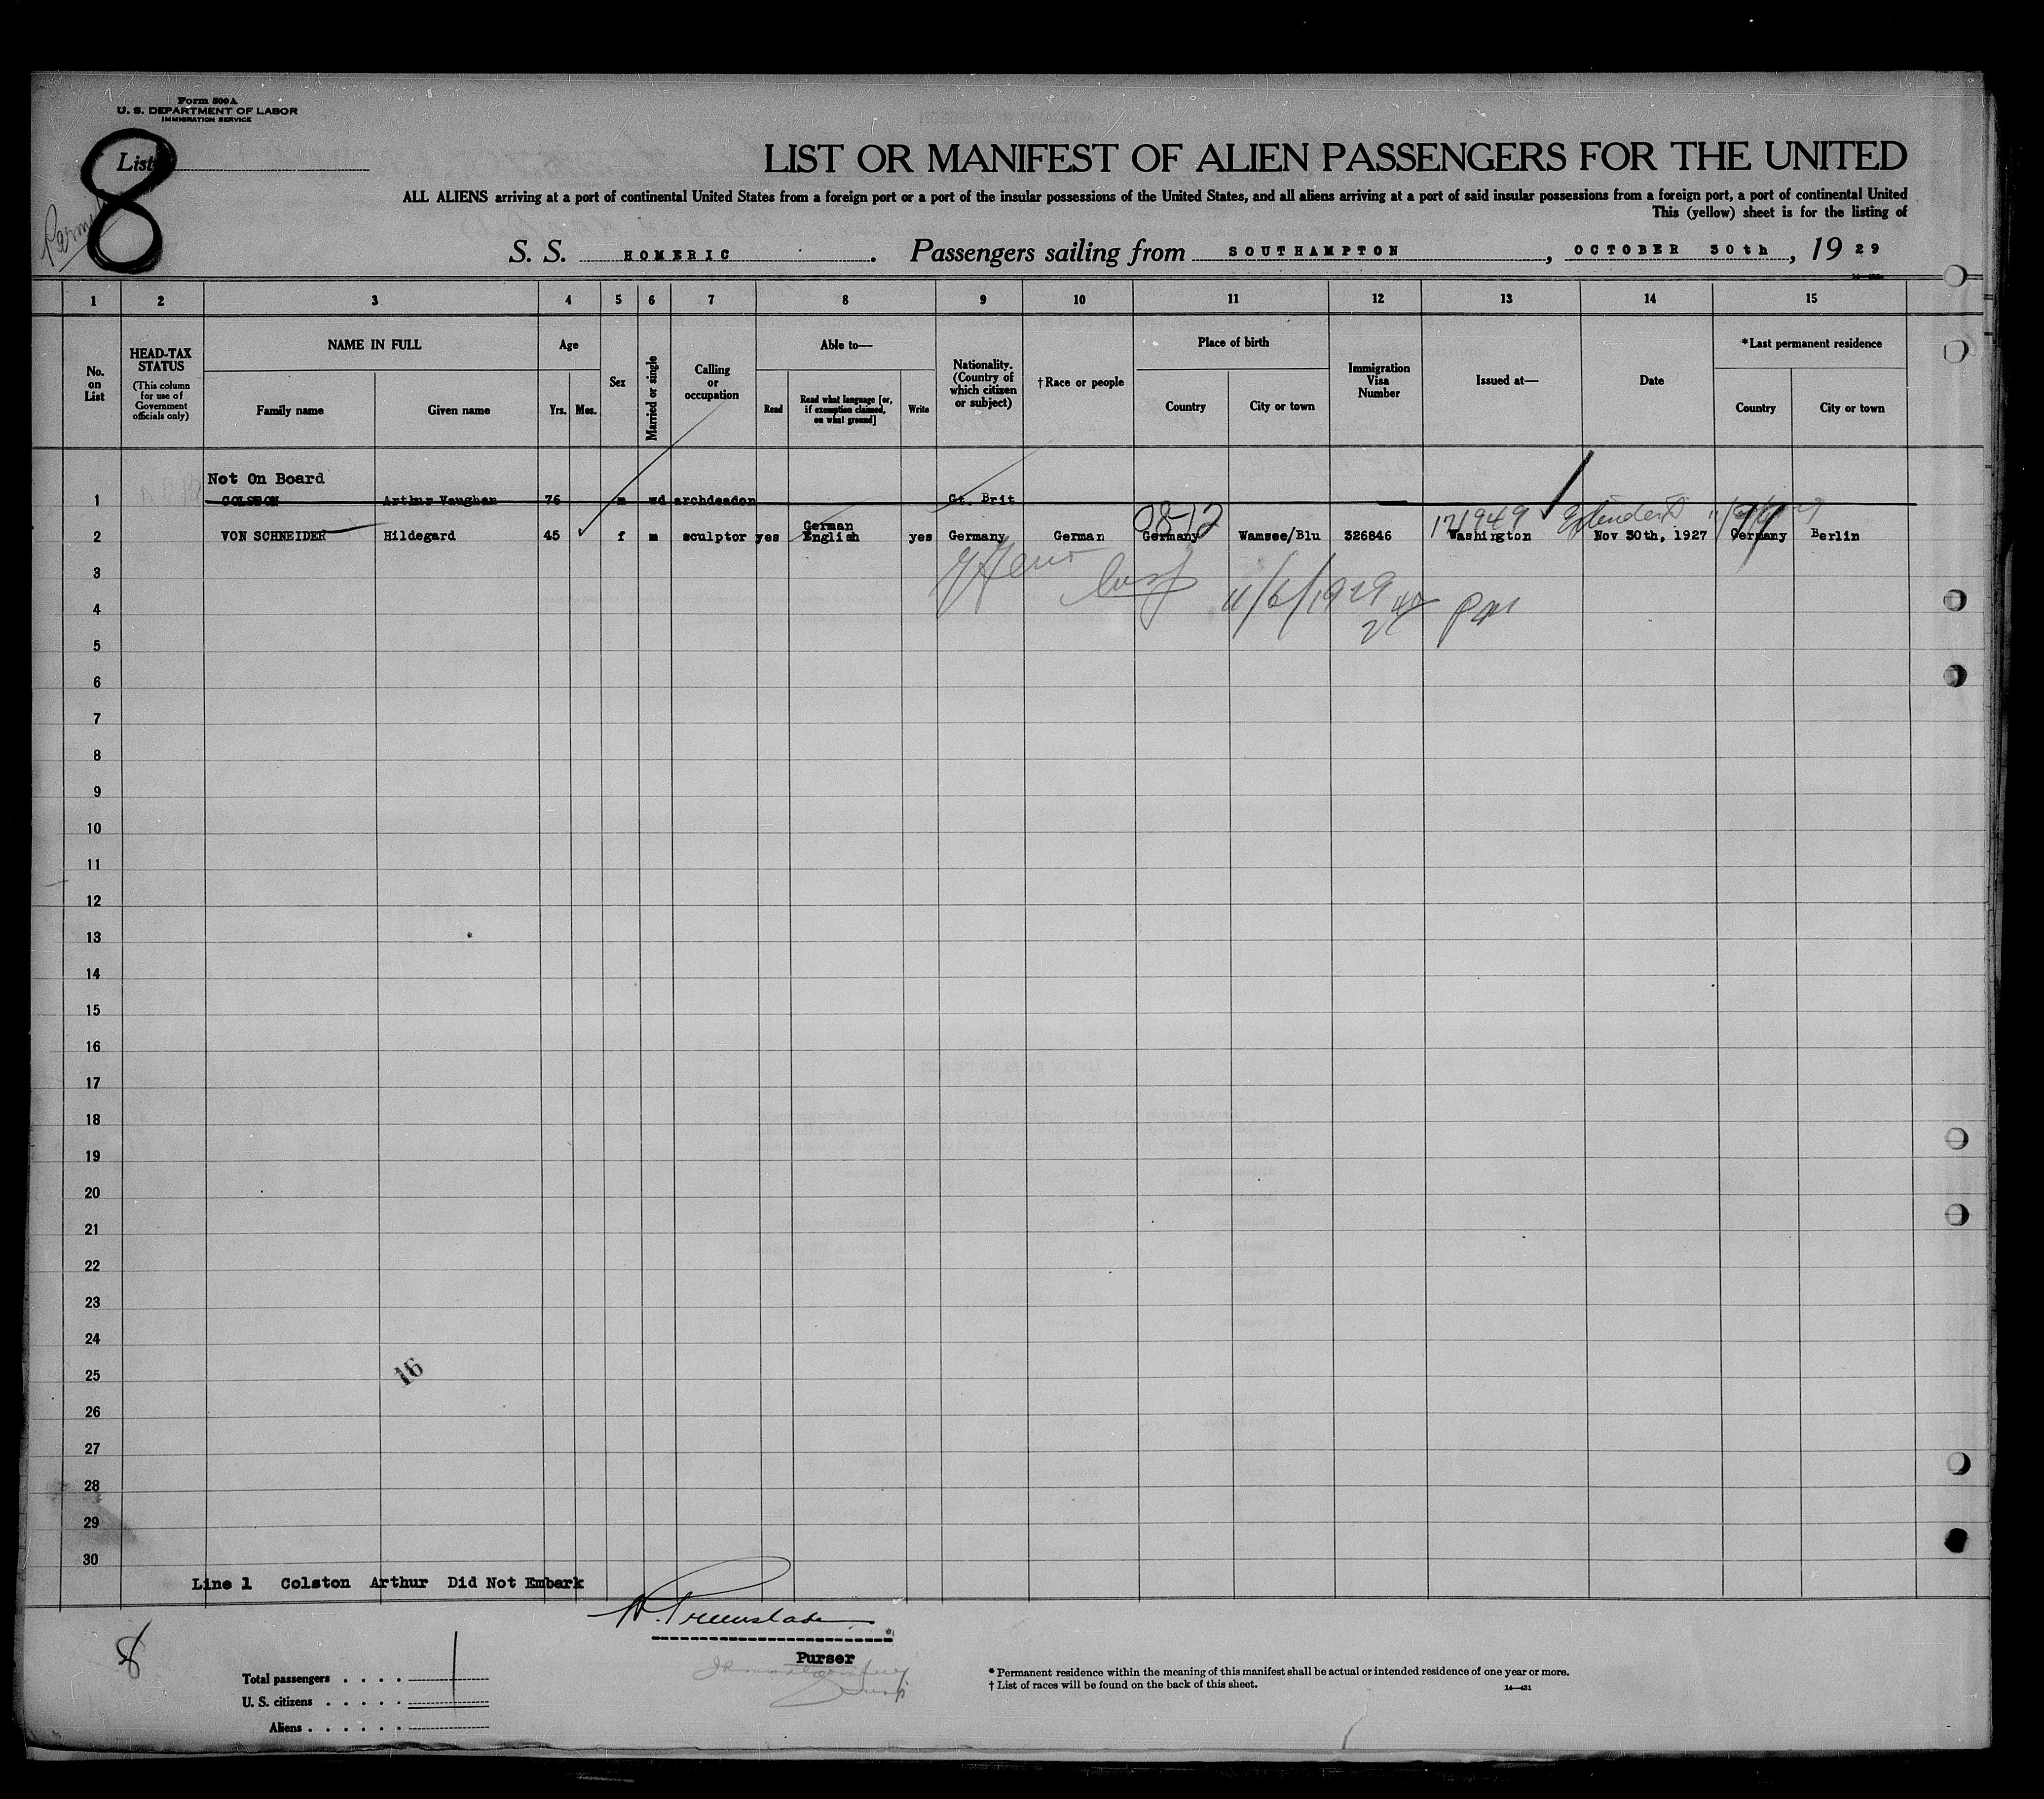 Form 500A
U. S. DEPARTMENT OF LABOR
IMMIGRATION SERVICE
List 8
LIST OR MANIFEST OF ALIEN PASSENGERS FOR THE UNITED
ALL ALIENS arriving at a port of continental United States from a foreign port or a port of the insular possessions of the United States, and all aliens arriving at a port of said insular possessions from a foreign port, a port of continental United
This (yellow) sheet is for the listing of
S. S. HOMERIC. Passengers sailing from SOUTHAMPTON, OCTOBER 30th, 1929
1 2 3 4 5 6 7 8 9 10 11 12 13 14 15
No. on List
HEAD-TAX STATUS
(This column for use of Government officials only)
NAME IN FULL
Family name Given name
Age
Yrs. Mos.
Sex
Married or single
Calling or occupation
Able to—
Read
Read what language [or, if exemption claimed, on what ground]
Write
Nationality. (Country of which citizen or subject)
†Race or people
Place of birth
Country City or town
Immigration Visa Number
Issued at—
Date
*Last permanent residence
Country City or town
Not On Board
1 COLSTON Arthur Vaughan 76 m wd archdeadon Gt. Brit
08-12 171949 Extended
German
2 VON SCHNEIDER Hildegard 45 f m sculptor yes English yes Germany German Germany Wamsee/Blu 326846 Washington Nov 30th, 1927 Germany Berlin
3
11/6/1929 PM
4
5
6
7
8
9
10
11
12
13
14
15
16
17
18
19
20
21
22
23
24
25
16
26
27
28
29
30
Line 1 Colston Arthur Did Not Embark
8
Purser
Total passengers . . . . 1
U. S. citizens . . . . .
Aliens . . . . . .
* Permanent residence within the meaning of this manifest shall be actual or intended residence of one year or more.
† List of races will be found on the back of this sheet.
14—431